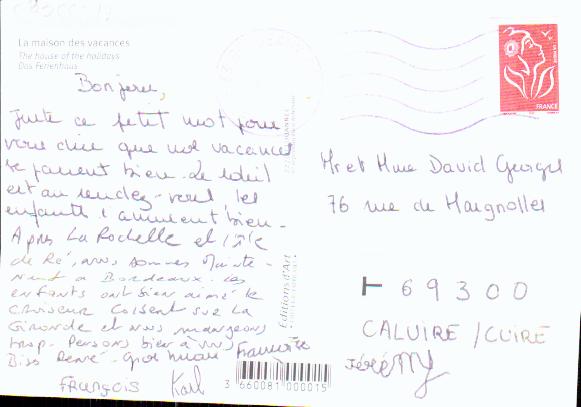 La maison des vacances
The house of the holidays
Das Ferienhaus
Bonjour,
Juste ce petit mot pour
vous dire que nos vacances
se passent bien. Le soleil
est au rendez-vous, les
enfants s'amusent bien.
Après La Rochelle et l'île
de Ré, nous sommes mainte-
nant à Bordeaux. Les
enfants ont bien aimé le
croiseur Colbert sur la
Gironde et nous mangeons
trop. Pensons bien à vous
Bises
Françoise
FRANÇOIS
Karl
Jérémy
Mr et Mme David Georges
76 rue de Margnolles
69300
CALUIRE / CUIRE
FRANCE
Editions d'Art
3 660081 000015